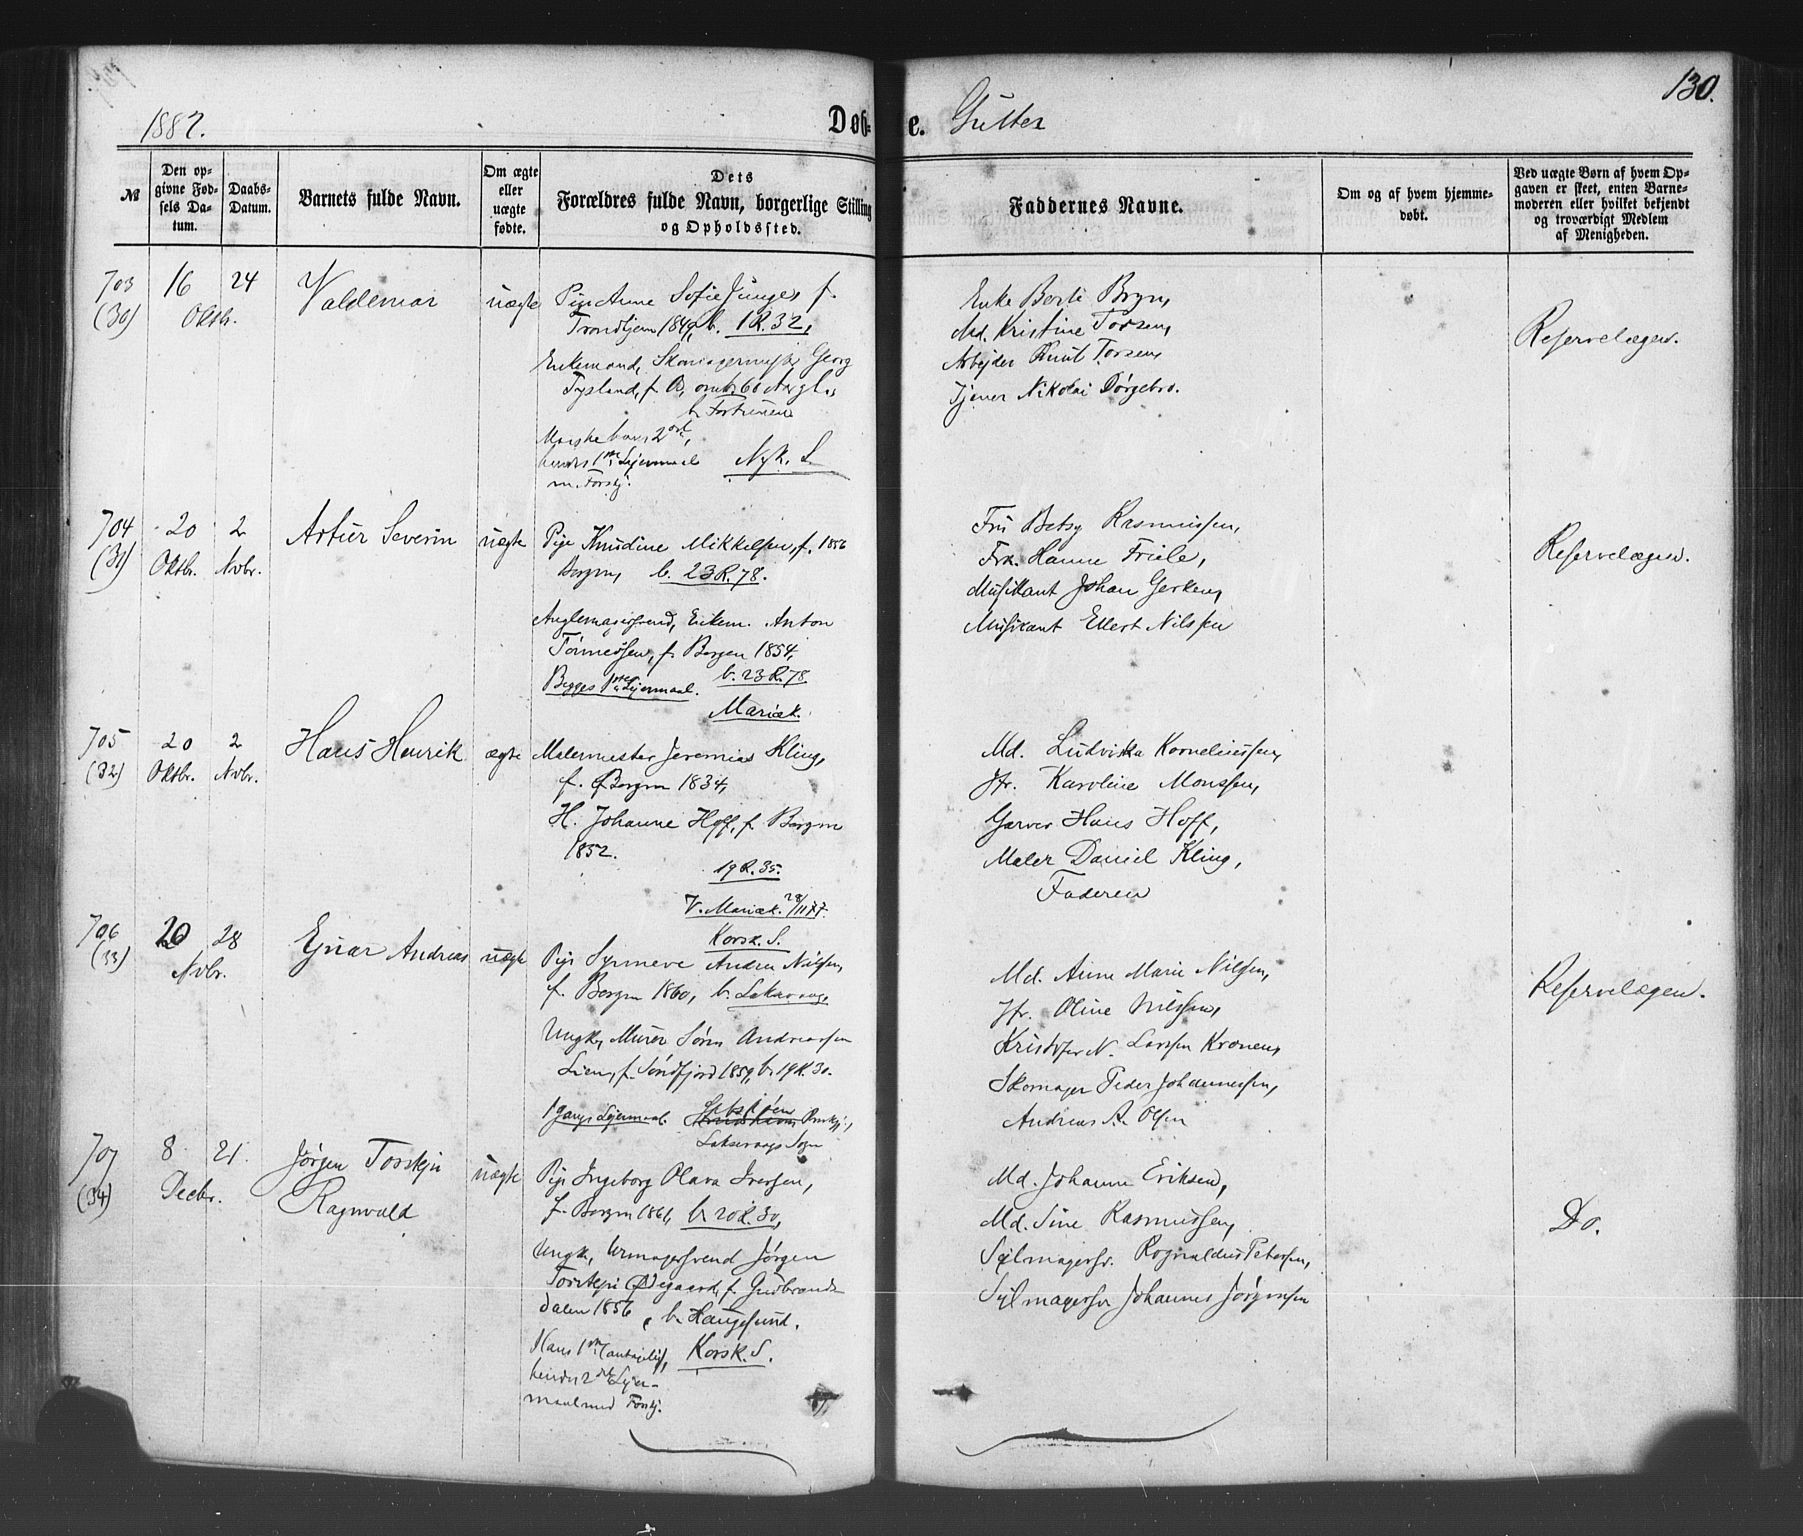 130.
1887. Døb- e. Gutter
№
Den op-
givne Fød-
sels Da-
tum.
Daabs-
Datum.
Barnets fulde Navn.
Om ægte
eller
uægte
fødte.
Dets
Forældres fulde Navn, borgerlige Stilling
og Opholdssted.
Faddernes Navne.
Om og af hvem hjemme-
døbt.
Ved uægte Børn af hvem Op-
gaven er skeet, enten Barne-
moderen eller hvilket bekjendt
og troværdigt Medlem
af Menigheden.
703
(30)
16
Oktb.
24
Valdemar
uægte
Pige Anne Sofie Junges f.
Trondhjem 1849, b. 1 R. 32,
Enkemand, Georg
Tysland, f.
b. Fortunen
Maaske hans 2den,
hendes 1ste Lejermaal
m. Forskj.
Nyk. S.
Enke Berte Bryn,
Md. Kristine Torsen,
Arbejder Knut Torsen,
Tjener Nikolai Dørgebro.
Reservelægen.
704
(31)
20
Oktbr.
2
Novbr.
Artur Severin
uægte
Pige Knudine Mikkelsen, f. 1856
Bergen, b. 23 R. 78.
Enkem. Anton
Tønnessen, f. Bergen 1854,
b. 23 R. 78.
Begges 1ste Lejermaal.
Mariæk.
Fru Betsy Rasmussen,
Frk. Hanne Friele,
Musikant Johan Gerken,
Musikant Ellert Nilsen
Reservelægen.
705
(32)
20
Oktbr.
2
Novbr.
Hans Henrik
ægte
Malermester Jeremias Kling,
f. Bergen 1834,
H. Johanne Hoff, f. Bergen
1852.
19 R. 35.
V. Mariæk. 28/11 77.
Korsk. S.
Md. Ludvika Korneliussen,
Jfr. Karoline Monssen,
Garver Hans Hoff,
Maler Daniel Kling,
Faderen
706
(33)
20
Novbr.
28
Ejnar Andreas
uægte
Pige Synneve Andrea Nilsen,
f. Bergen 1860, b. Laksevaag,
Ungk, Murer Søren Andreassen
Lien, f. Søndfjord 1859, b. 19 R. 30.
1 Gangs Lejermaal.
Laksevaags Sogn
Md. Anne Marie Nilsen,
Jfr. Oline Nilssen,
Kristofer N. Larsen Kronen,
Skomager Peder Johannessen,
Andreas A. Olsen
Reservelægen.
707
(34)
8
Decbr.
21.
Jørgen Torskjn
Ragnvald
uægte
Pige Ingeborg Olava Iversen,
f. Bergen 1861, b. 20 R. 30,
Ungk, Urmagersvend Jørgen
Ødegaard, f. Gudbrands-
dalen 1856, b. Haugesund.
Hans 1ste (antagelig),
hendes 2det Lejer-
maal med Forskj.
Korsk. S.
Md. Johanne Eriksen,
Md. Sine Rasmussen,
Sejlmagersv. Rognaldus Petersen,
Sejlmagersv Johannes Jørgensen
Do.